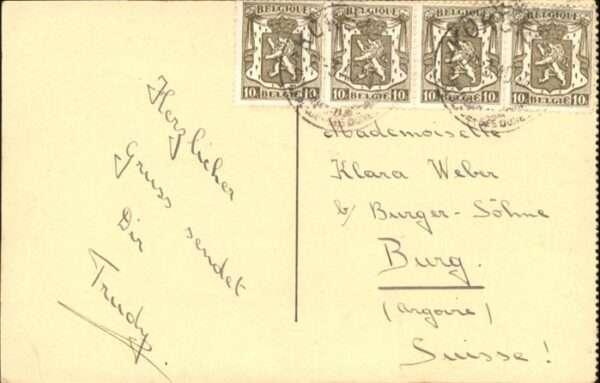 BELGIQUE BELGIQUE BELGIQUE BELGIQUE
10 BELGIË 10 10 BELGIË 10 10 BELGIË 10 10 BELGIË 10
Herzlicher
Gruss sendet
Dir
Trudy.
Mademoiselle
Klara Weber
b/ Burger-Söhne
Burg.
(Argovie)
Suisse!